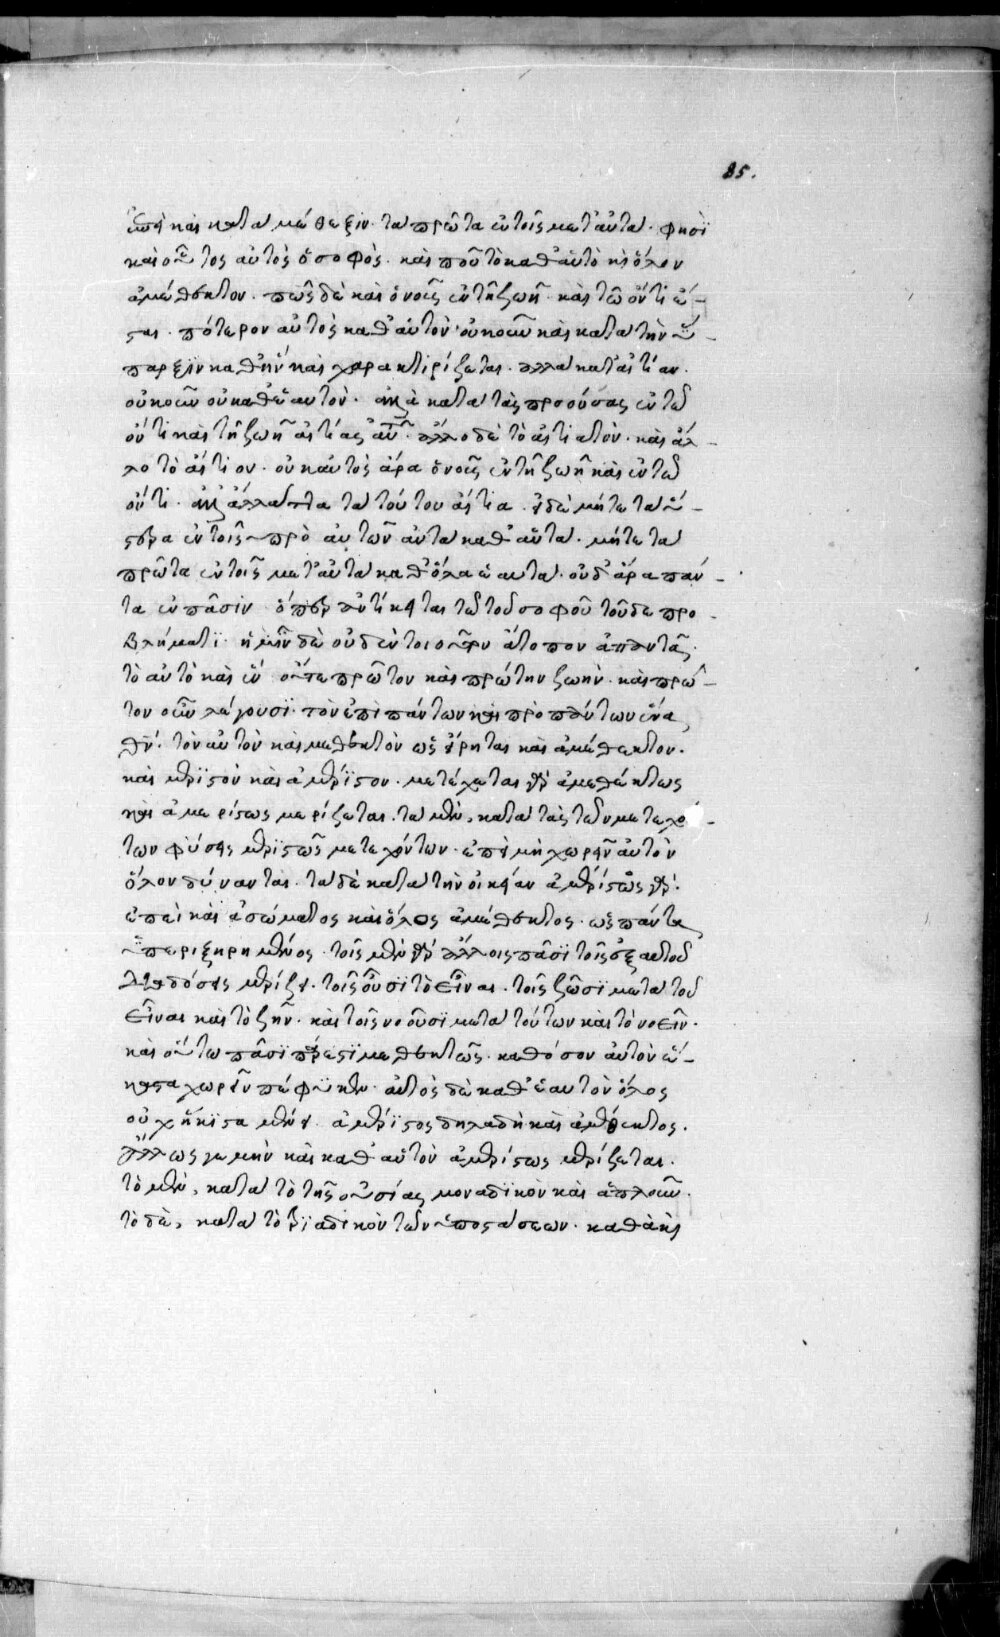 85.
ἐπεὶ καὶ κατὰ μέθεξιν. τὰ πρῶτα ἐν τοῖς μετ' αὐτά. φησὶ
καὶ οὗτος αὐτὸς ὁ σοφός. καὶ ποῦ τὸ καθ' αὑτὸ καὶ ὅλον
ἀμέθεκτον. πῶς δὲ καὶ ὁ νοῦς ἐν τῇ ζωῇ. καὶ τῷ ὄντι ἔ-
σται. πότερον αὐτὸς καθ' αὑτόν. οὐκοῦν καὶ κατὰ τὴν ὕ-
παρξιν καθ' ἣν καὶ χαρακτιρίζεται. ἀλλὰ κατ' αἰτίαν.
οὐκοῦν οὐ καθ' ἑαυτόν. ἀλλὰ κατὰ τὰς προούσας ἐν τῷ
ὄντι καὶ τῇ ζωῇ αἰτίας αὐτοῦ. ἄλλο δὲ τὸ αἰτιατόν. καὶ ἄλ-
λο τὸ αἴτιον. οὐκ αὐτὸς ἄρα ὁ νοῦς ἐν τῇ ζωῇ καὶ ἐν τῷ
ὄντι. ἀλλ' ἄλλα τὰ τούτου αἴτια. εἰ δὲ μήτε τὰ ὕ-
στερα ἐν τοῖς πρὸ αὐτῶν αὐτὰ καθ' αὑτά. μήτε τὰ
πρῶτα ἐν τοῖς μετ' αὐτὰ καθ' ὅλα ἑαυτά. οὐδ' ἄρα πάν-
τα ἐν πᾶσιν. ὅπερ ἀντίκειται τῷ τοῦ σοφοῦ τοῦδε προ-
βλήματι. ἡμῖν δὲ οὐδὲν τοιοῦτον ἄτοπον ἀπαντᾷ.
τὸ αὐτὸ καὶ ἓν ὄντα πρῶτον καὶ πρώτην ζωὴν. καὶ πρῶ-
τον νοῦν λέγουσι. τὸν ἐπὶ πάντων καὶ πρὸ πάντων ἕνα
θεόν. τὸν αὐτὸν καὶ μεθεκτὸν ὡς εἴρηται καὶ ἀμέθεκτον.
καὶ μεριστὸν καὶ ἀμέριστον. μετέχεται γὰρ ἀμεθέκτως
καὶ ἀμερίστως μερίζεται. τὰ μὲν, κατὰ τὰς τῶν μετεχό-
των φύσεις μεριστῶς μετεχόντων. ἐπεὶ μὴ χωρεῖν αὐτὸν
ὅλον δύνανται. τὰ δὲ κατὰ τὴν οἰκείαν ἀμερίστως γάρ.
ἐπεὶ καὶ ἀσώματος καὶ ὅλως ἀμέθεκτος. ὡς πάντῃ
ὑπερεξῃρημένος. τοῖς μὲν γὰρ ἄλλοις πᾶσι τοῖς ἐξ αὐτοῦ
διαδόσεις μερίζει. τοῖς οὖσι τὸ εἶναι. τοῖς ζῶσι μετὰ τοῦ
εἶναι καὶ τὸ ζῆν. καὶ τοῖς νοοῦσι μετὰ τούτων καὶ τὸ νοεῖν.
καὶ οὕτω πᾶσι πάρεστι μεθεκτῶς. καθόσον αὐτὸν ἕ-
καστα χωρεῖν πέφυκεν. αὐτὸς δὲ καθ' ἑαυτὸν ὅλος
οὐχ ἥκιστα μένει. ἀμέριστος δηλαδὴ καὶ ἀμέθεκτος.
ἄλλως γε μὴν καὶ καθ' αὑτὸν ἀμερίστως μερίζεται.
τὸ μὲν, κατὰ τὸ τῆς οὐσίας μοναδικὸν καὶ ἁπλοῦν.
τὸ δὲ, κατὰ τὸ τριαδικὸν τῶν ὑποστάσεων. καθὰ καὶ